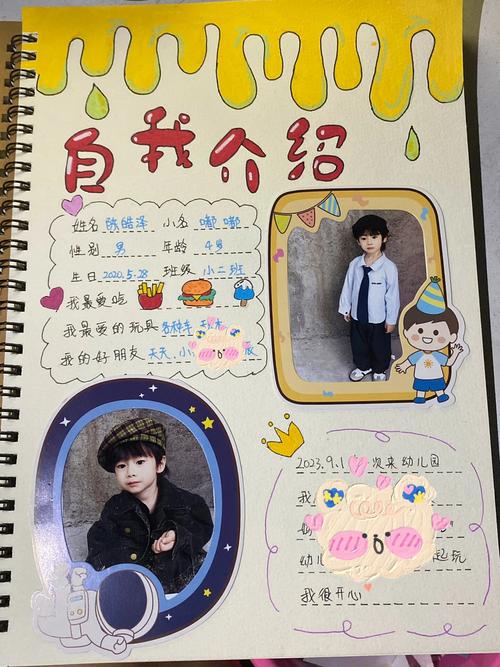 自我介绍
姓名 陈皓泽 小名 嘟嘟
性别 男 年龄 4岁
生日 2020.5.28 班级 小二班
我最爱吃
我最爱的玩具 各种车
我的好朋友 天天、小
2023.9.1 次来幼儿园
我
幼儿 起玩
我很开心